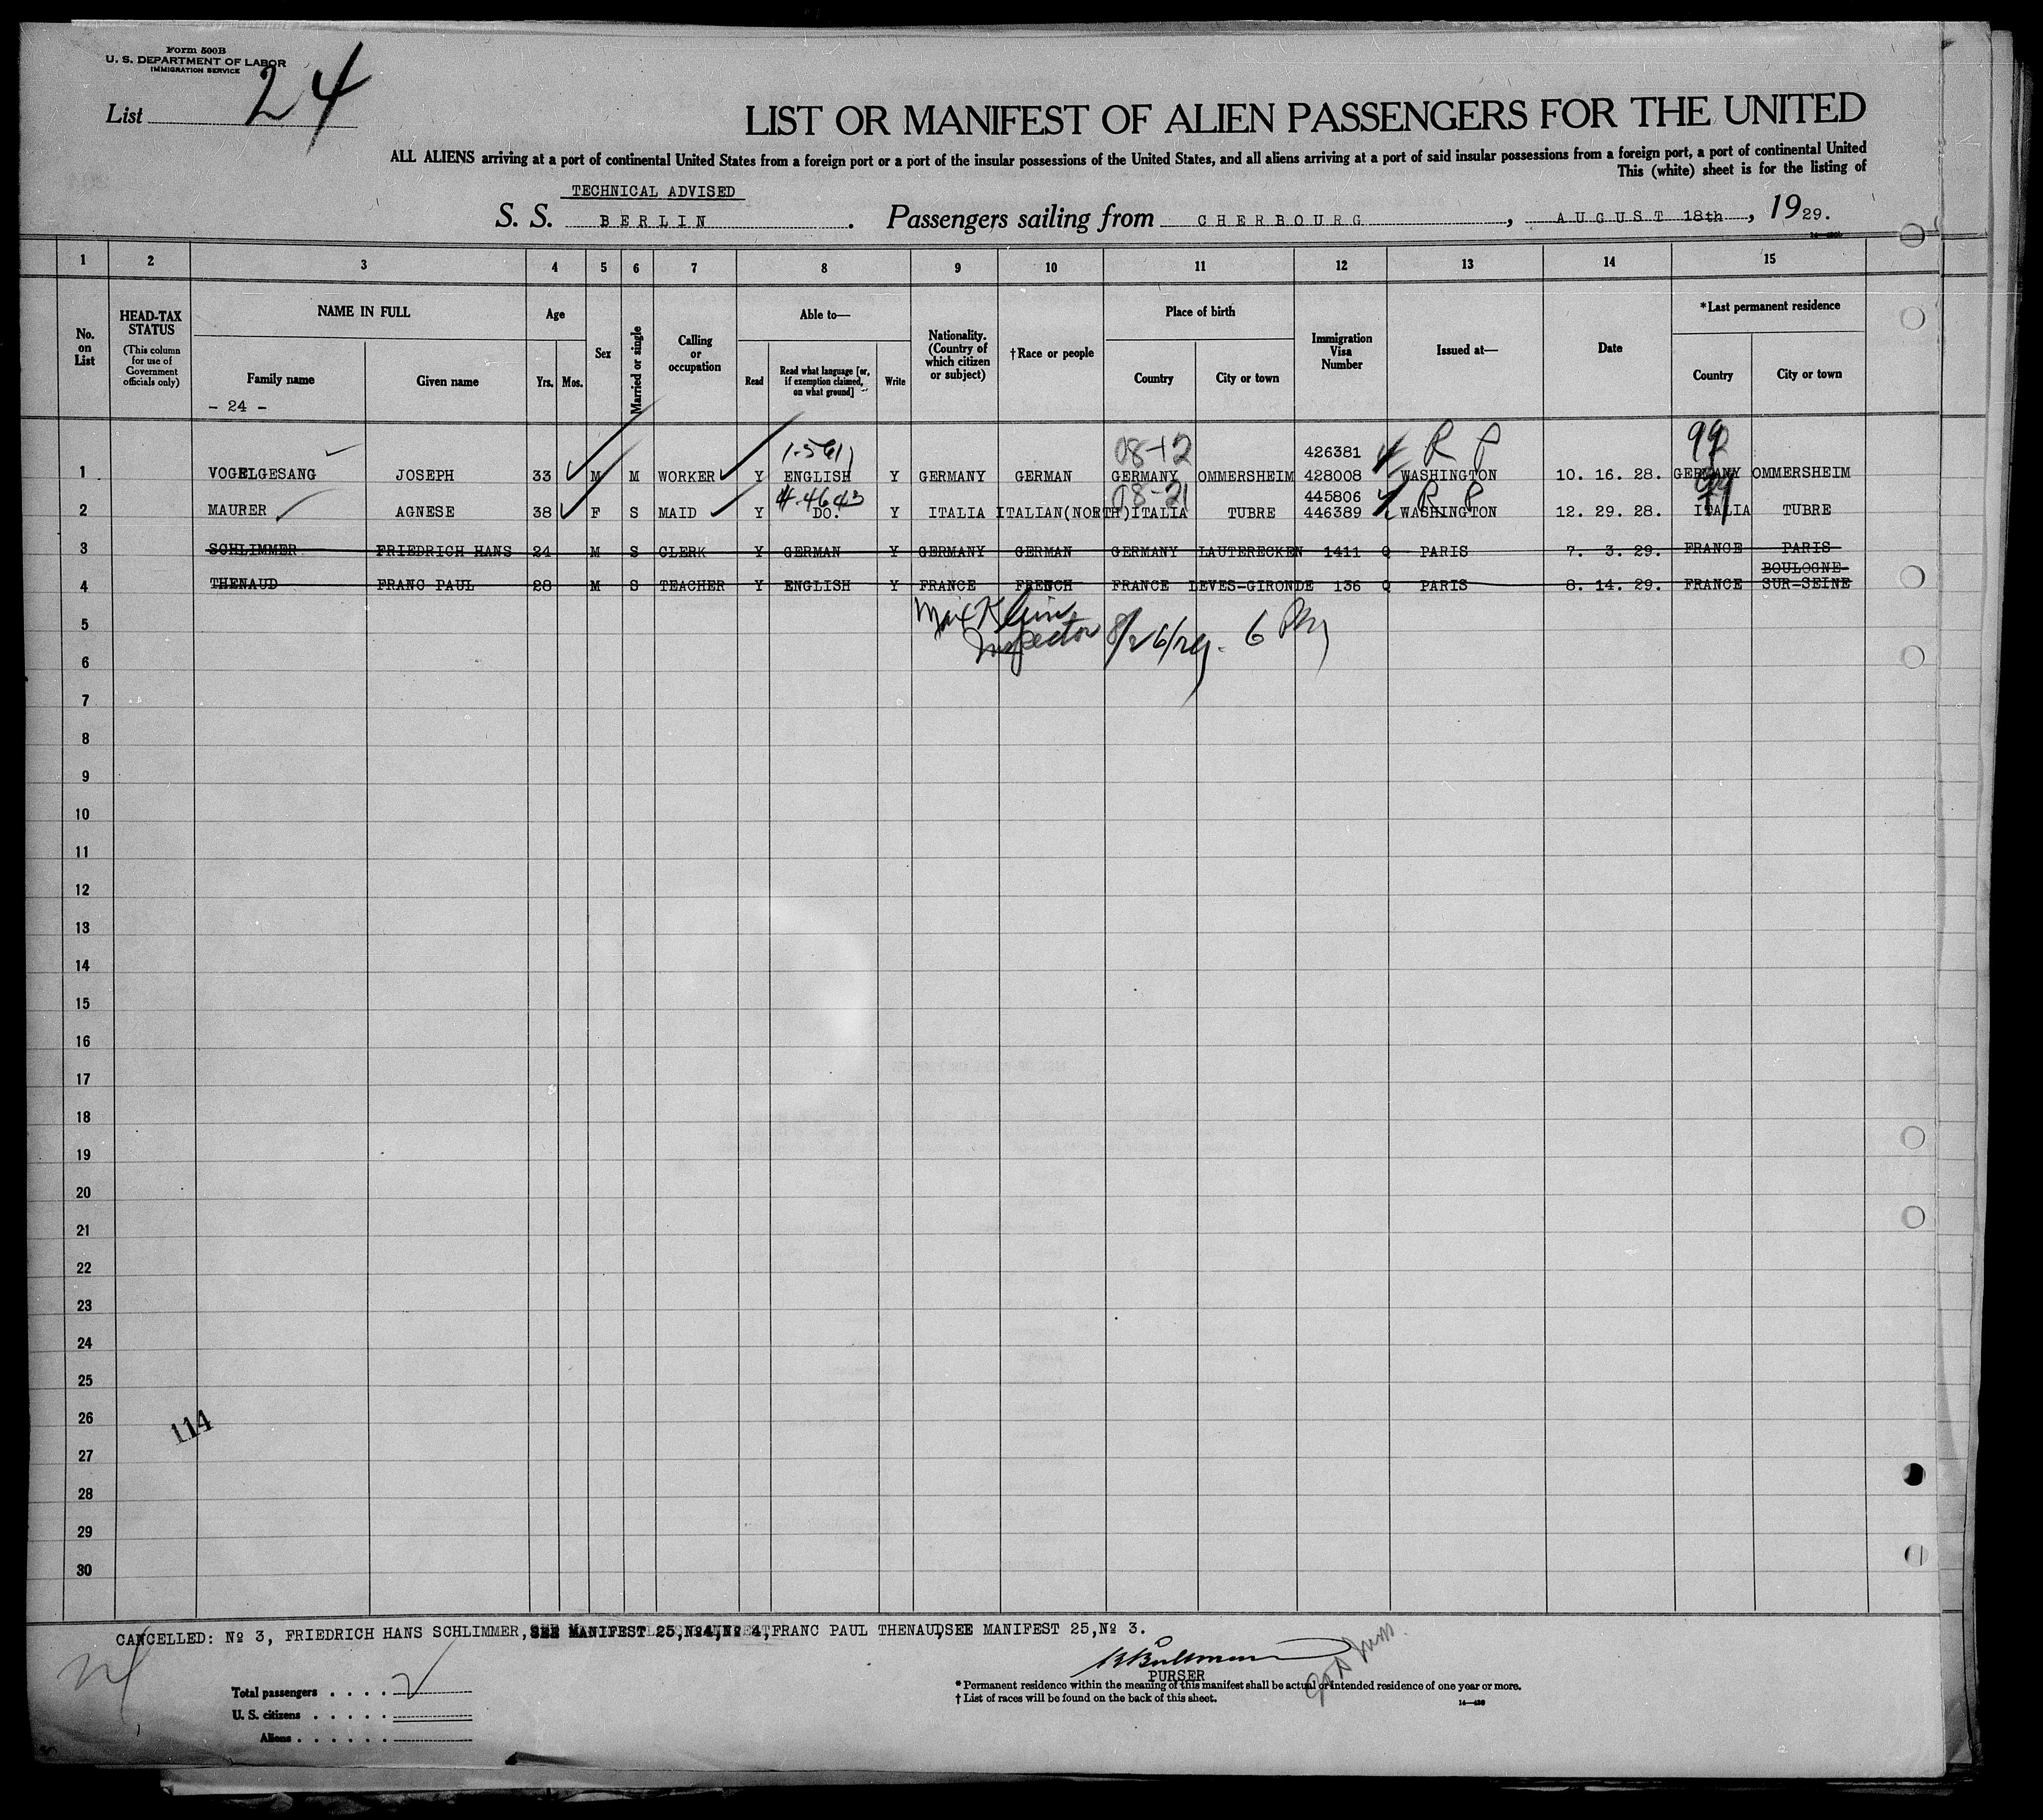 Form 500B
U. S. DEPARTMENT OF LABOR
IMMIGRATION SERVICE
List 24
LIST OR MANIFEST OF ALIEN PASSENGERS FOR THE UNITED
ALL ALIENS arriving at a port of continental United States from a foreign port or a port of the insular possessions of the United States, and all aliens arriving at a port of said insular possessions from a foreign port, a port of continental United
This (white) sheet is for the listing of
TECHNICAL ADVISED
S. S. BERLIN. Passengers sailing from CHERBOURG, AUGUST 18th, 1929.
1 2 3 4 5 6 7 8 9 10 11 12 13 14 15
No. on List
HEAD-TAX STATUS
(This column for use of Government officials only)
NAME IN FULL
Family name
Given name
Age
Yrs. Mos.
Sex
Married or single
Calling or occupation
Able to—
Read
Read what language [or, if exemption claimed, on what ground]
Write
Nationality. (Country of which citizen or subject)
†Race or people
Place of birth
Country
City or town
Immigration Visa Number
Issued at—
Date
*Last permanent residence
Country
City or town
- 24 -
08-12 426381 R P 99
1 VOGELGESANG JOSEPH 33 M M WORKER Y ENGLISH Y GERMANY GERMAN GERMANY OMMERSHEIM 428008 WASHINGTON 10. 16. 28. GERMANY OMMERSHEIM
08-21 445806 R P 99
2 MAURER AGNESE 38 F S MAID Y DO. Y ITALIA ITALIAN(NORTH) ITALIA TUBRE 446389 WASHINGTON 12. 29. 28. ITALIA TUBRE
3 SCHLIMMER FRIEDRICH HANS 24 M S CLERK Y GERMAN Y GERMANY GERMAN GERMANY LAUTERECKEN 1411 Q PARIS 7. 3. 29. FRANCE PARIS
4 THENAUD FRANC PAUL 28 M S TEACHER Y ENGLISH Y FRANCE FRENCH FRANCE LEVES-GIRONDE 136 Q PARIS 8. 14. 29. FRANCE BOULOGNE-SUR-SEINE
Max Klein
Inspector 8/26/29. 6 Pm
5
6
7
8
9
10
11
12
13
14
15
16
17
18
19
20
21
22
23
24
25
26
114
27
28
29
30
CANCELLED: № 3, FRIEDRICH HANS SCHLIMMER, SEE MANIFEST 25, №4, № 4, FRANC PAUL THENAUD, SEE MANIFEST 25, № 3.
PURSER
* Permanent residence within the meaning of this manifest shall be actual or intended residence of one year or more.
† List of races will be found on the back of this sheet.
Total passengers
U. S. citizens
Aliens